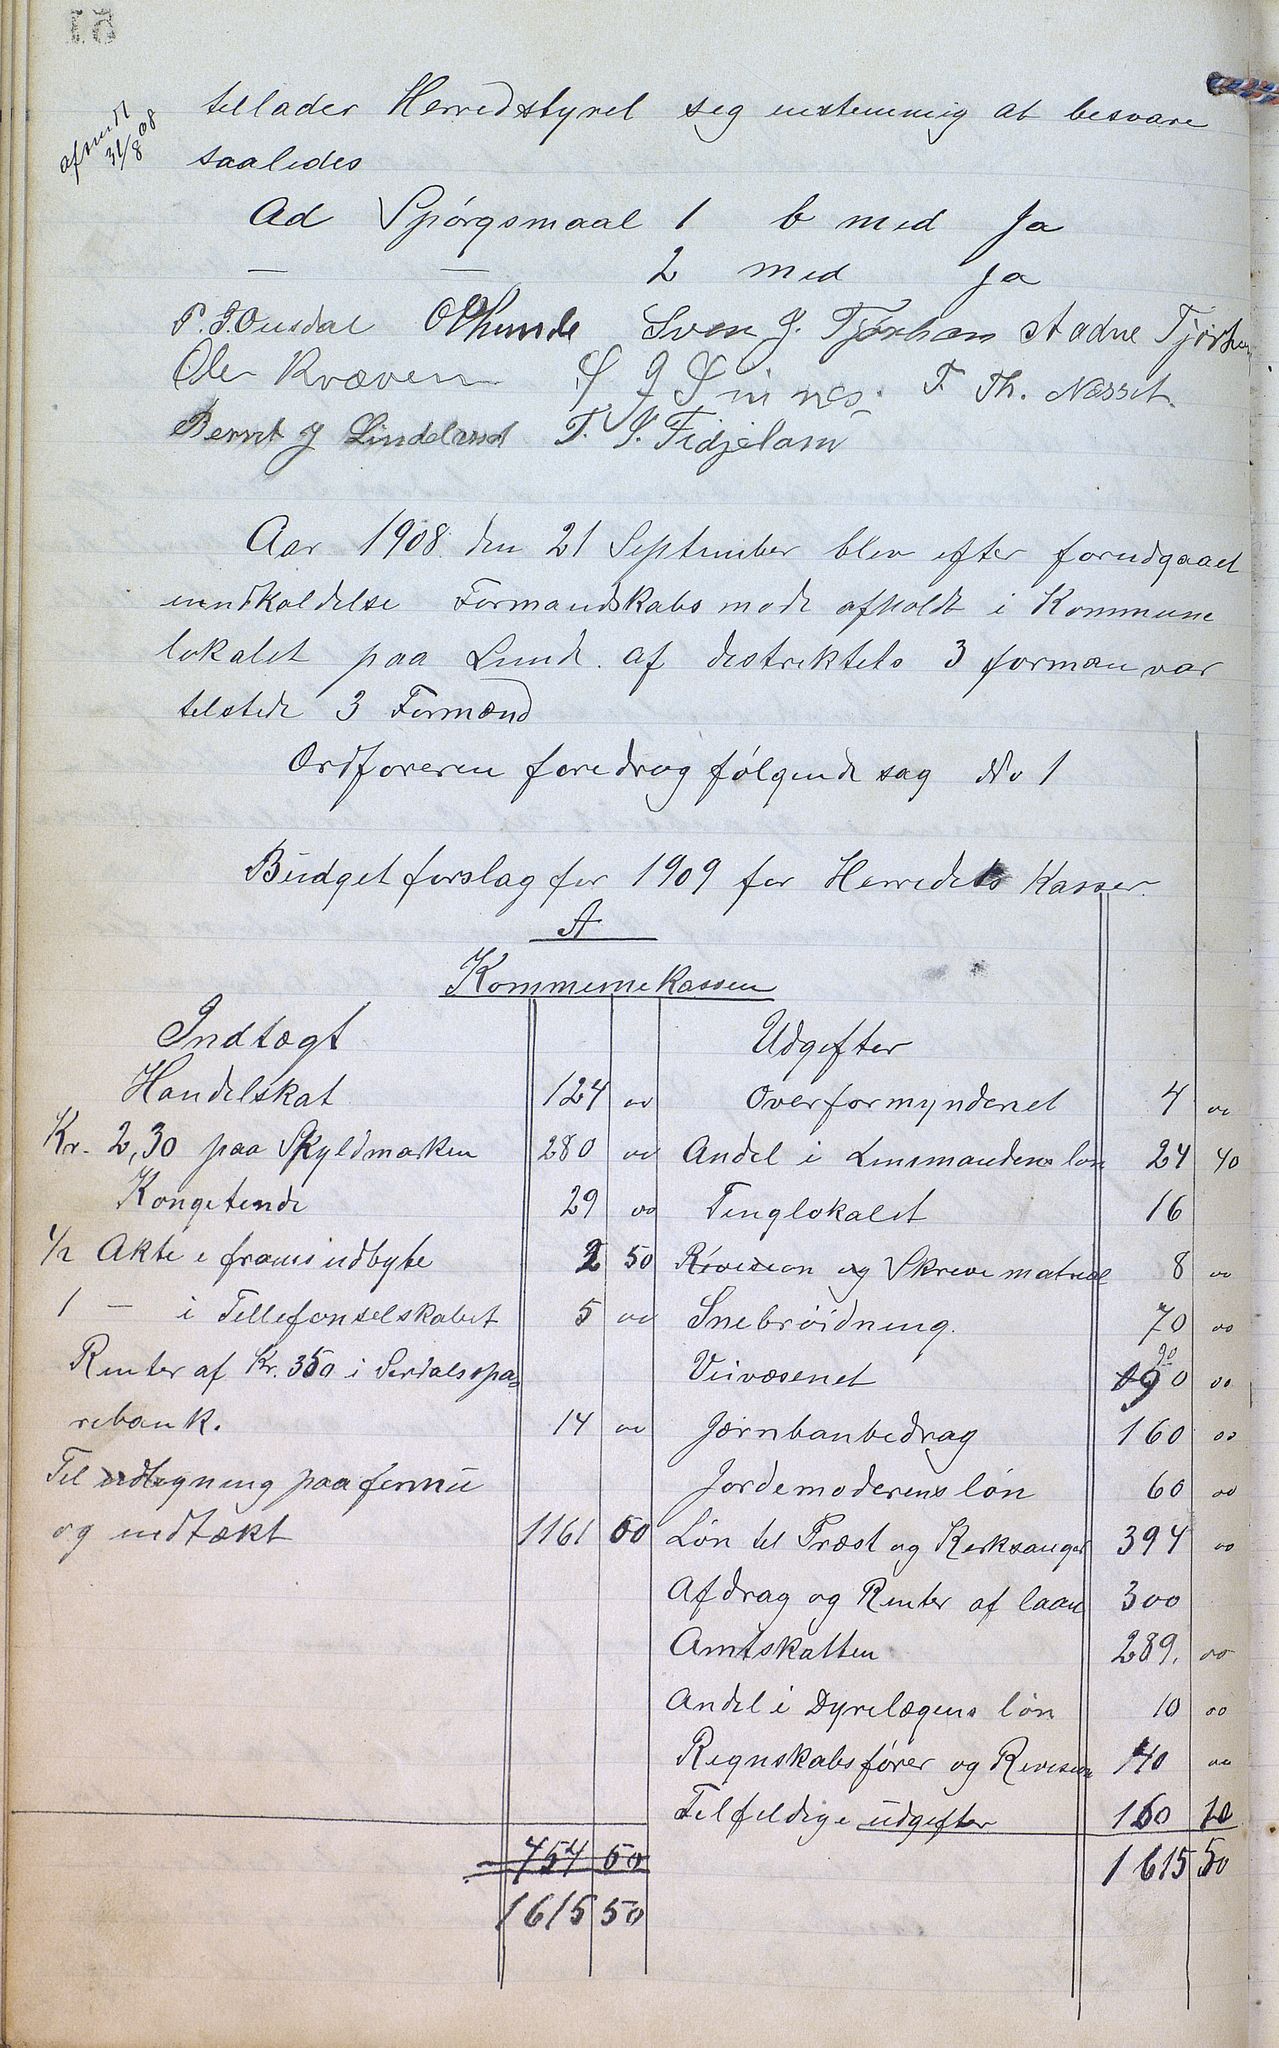 51
afsendt
31/8 08
tellader Herredstyret seg enstemmig at besvare
saaledes
Ad Spørgsmaal 1 b med Ja
— — 2 med Ja
P. J. Ousdal O Hunde Sven J. Tjørham Aadne Tjørhom
Ole Kvæven S J Sinnes. T. Th. Nesset.
Bernt J Lindeland T. S. Fidjeland
Aar 1908 den 21 September blev efter forudgaaet
inndkaldelse Formandskabsmøde afholdt i Kommune
lokalet paa Lund. af destriktets 3 formæn var
telstede 3 Formænd
Ordføreren foredrog følgende sag No 1
Budgetforslag for 1909 for Herredets Kasser.
A
Kommunekassen
Indtægt Udgifter
Handelskat 124 00 Overformynderiet 4 00
Kr. 2,30 paa Skyldmarken 280 00 Andel i Lensmandens løn 24 40
Kongetende 29 00 Tinglokalet 16
1/2 Aktie i frams udbyte 2 50 Revision og Skrivematrial 8 00
1 — i Tellefonselskabet 5 00 Snebrøidning. 70 00
Renter af Kr. 350 i Serdalsspa Veivæsenet 90 00
rebank. 14 00 Jærnbanbedrag 160 00
Til udlegning paa formu Jordemoderens løn 60 00
og indtækt 1161 00 Løn til Præst og Kerksanger 394 00
Afdrag og Renter af laan 300
Amtskatten 289. 00
Andel i Dyrelægens løn 10 00
Regnskabsfører og Revision 40 00
Tilfeldige udgifter 150 10
454 50 1615 50
1615 50